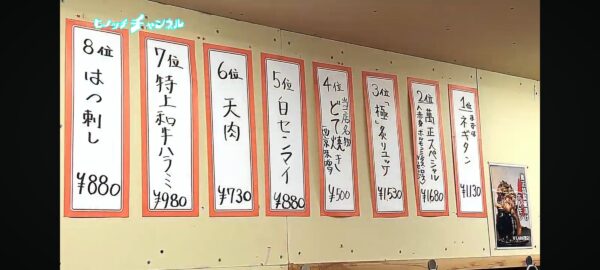 ヒノッチチャンネル
8位
はつ刺し
¥880
7位
特上和牛ハラミ
¥980
6位
天肉
¥730
5位
白センマイ
¥880
4位
当店名物
どて焼き
西京味噌
¥500
3位
「極」炙りユッケ
¥1530
2位
萬正スペシャル
¥1680
1位
ネギタン
¥1130